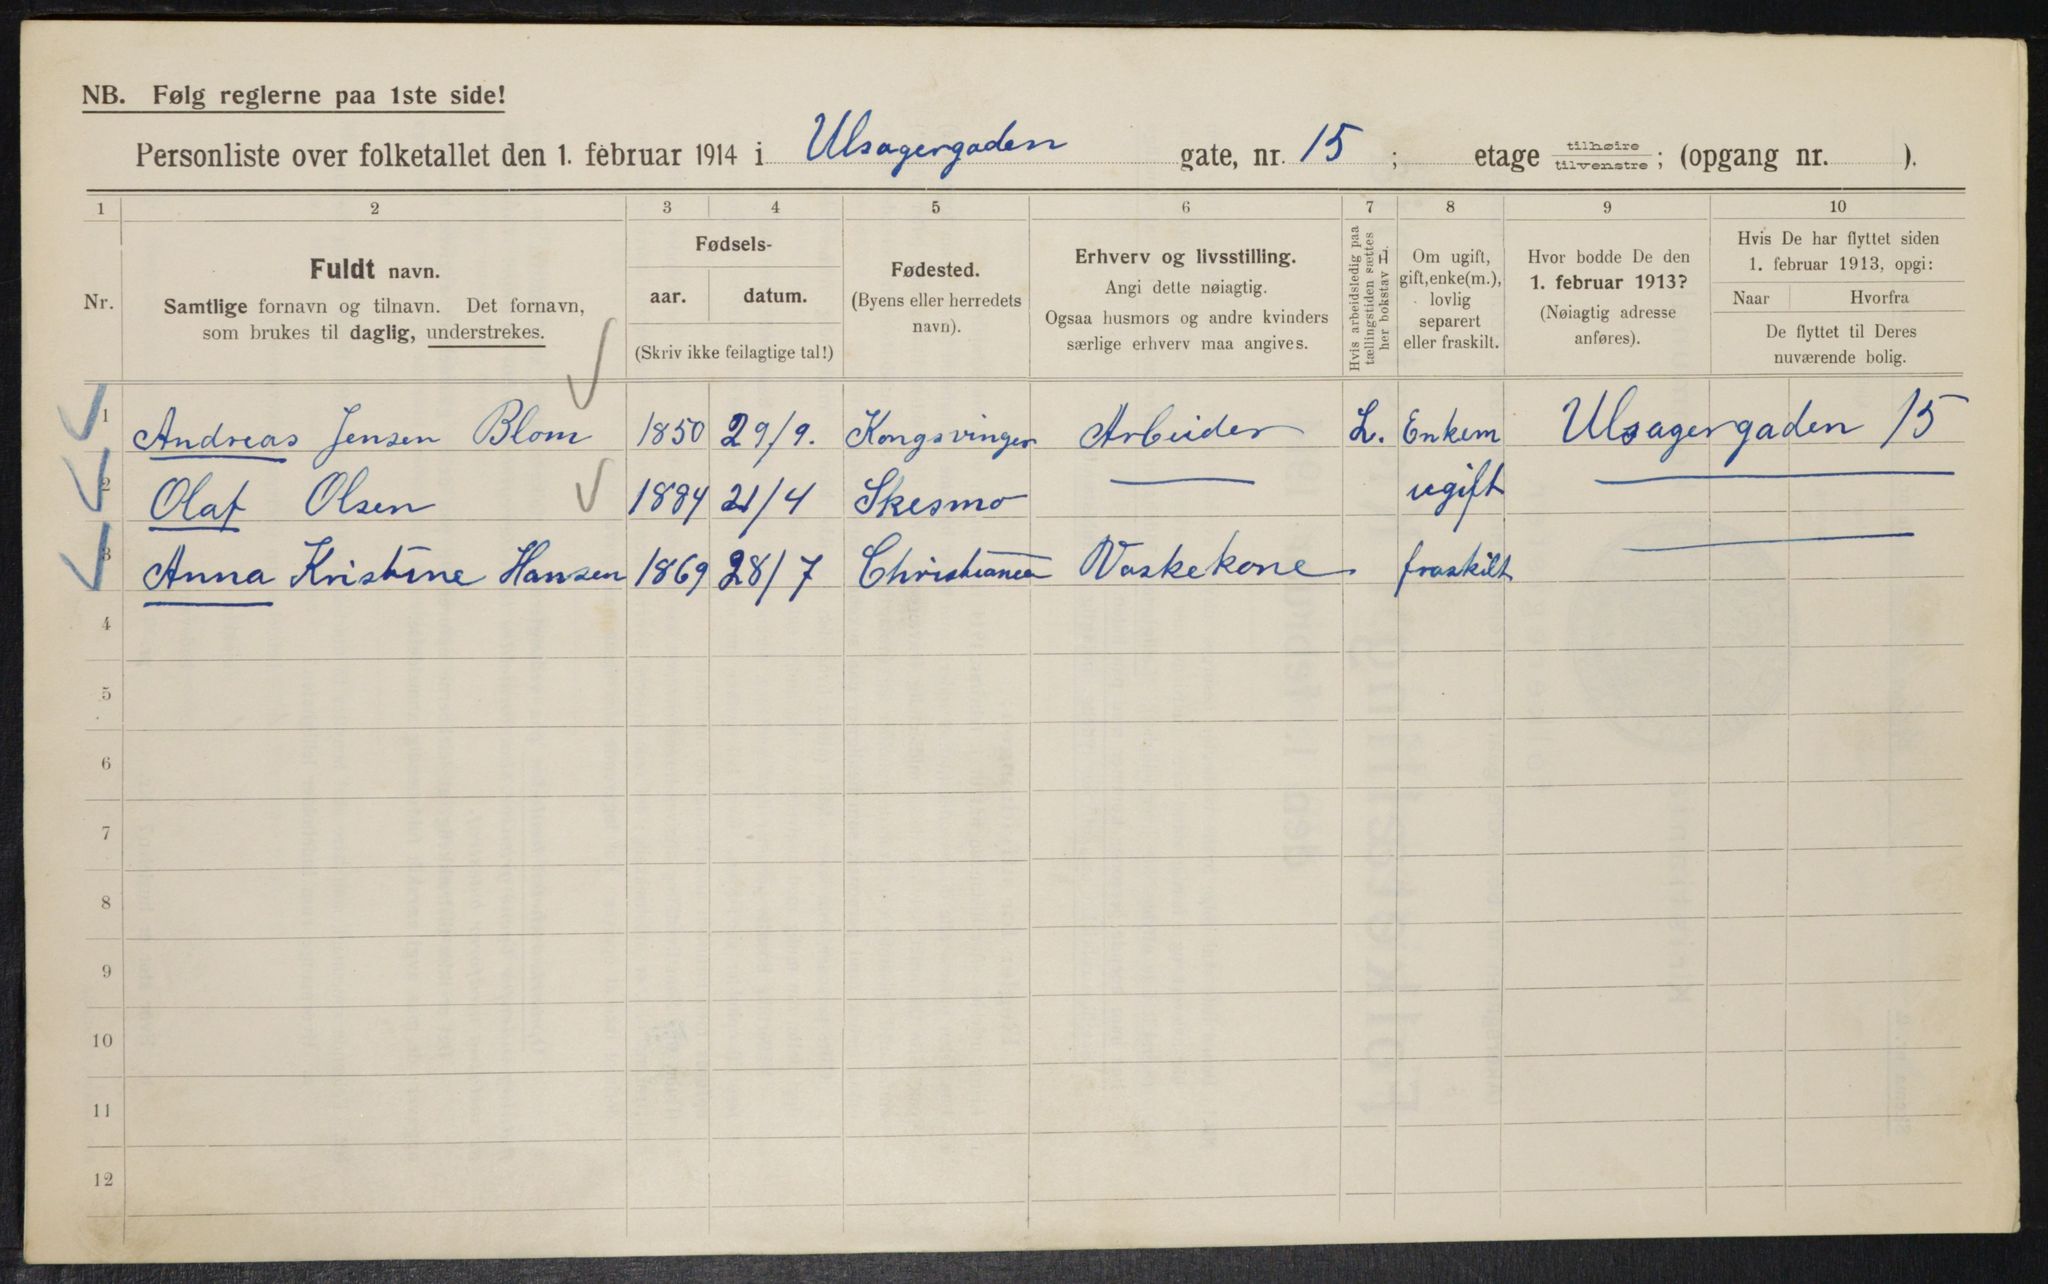 NB. Følg reglerne paa 1ste side!
Personliste over folketallet den 1. februar 1914 i Ulsagergaden gate, nr. 15 ; etage tilhøire tilvenstre ; (opgang nr. ).
1 2 3 4 5 6 7 8 9 10
Nr.
Fuldt navn.
Samtlige fornavn og tilnavn. Det fornavn,
som brukes til daglig, understrekes.
Fødsels-
aar. datum.
(Skriv ikke feilagtige tal!)
Fødested.
(Byens eller herredets
navn).
Erhverv og livsstilling.
Angi dette nøiagtig.
Ogsaa husmors og andre kvinders
særlige erhverv maa angives.
Hvis arbeidsledig paa
tællingstiden sættes
her bokstav L.
Om ugift,
gift, enke(m.),
lovlig
separert
eller fraskilt.
Hvor bodde De den
1. februar 1913?
(Nøiagtig adresse
anføres).
Hvis De har flyttet siden
1. februar 1913, opgi:
Naar Hvorfra
De flyttet til Deres
nuværende bolig.
1 Andreas Jensen Blom 1850 29/9. Kongsvinger Arbeider L. Enkem Ulsagergaden 15
2 Olaf Olsen 1884 21/4 Skesmo — ugift —
3 Anna Kristine Hansen 1869 28/7 Christiania Vaskekone fraskilt —
4
5
6
7
8
9
10
11
12